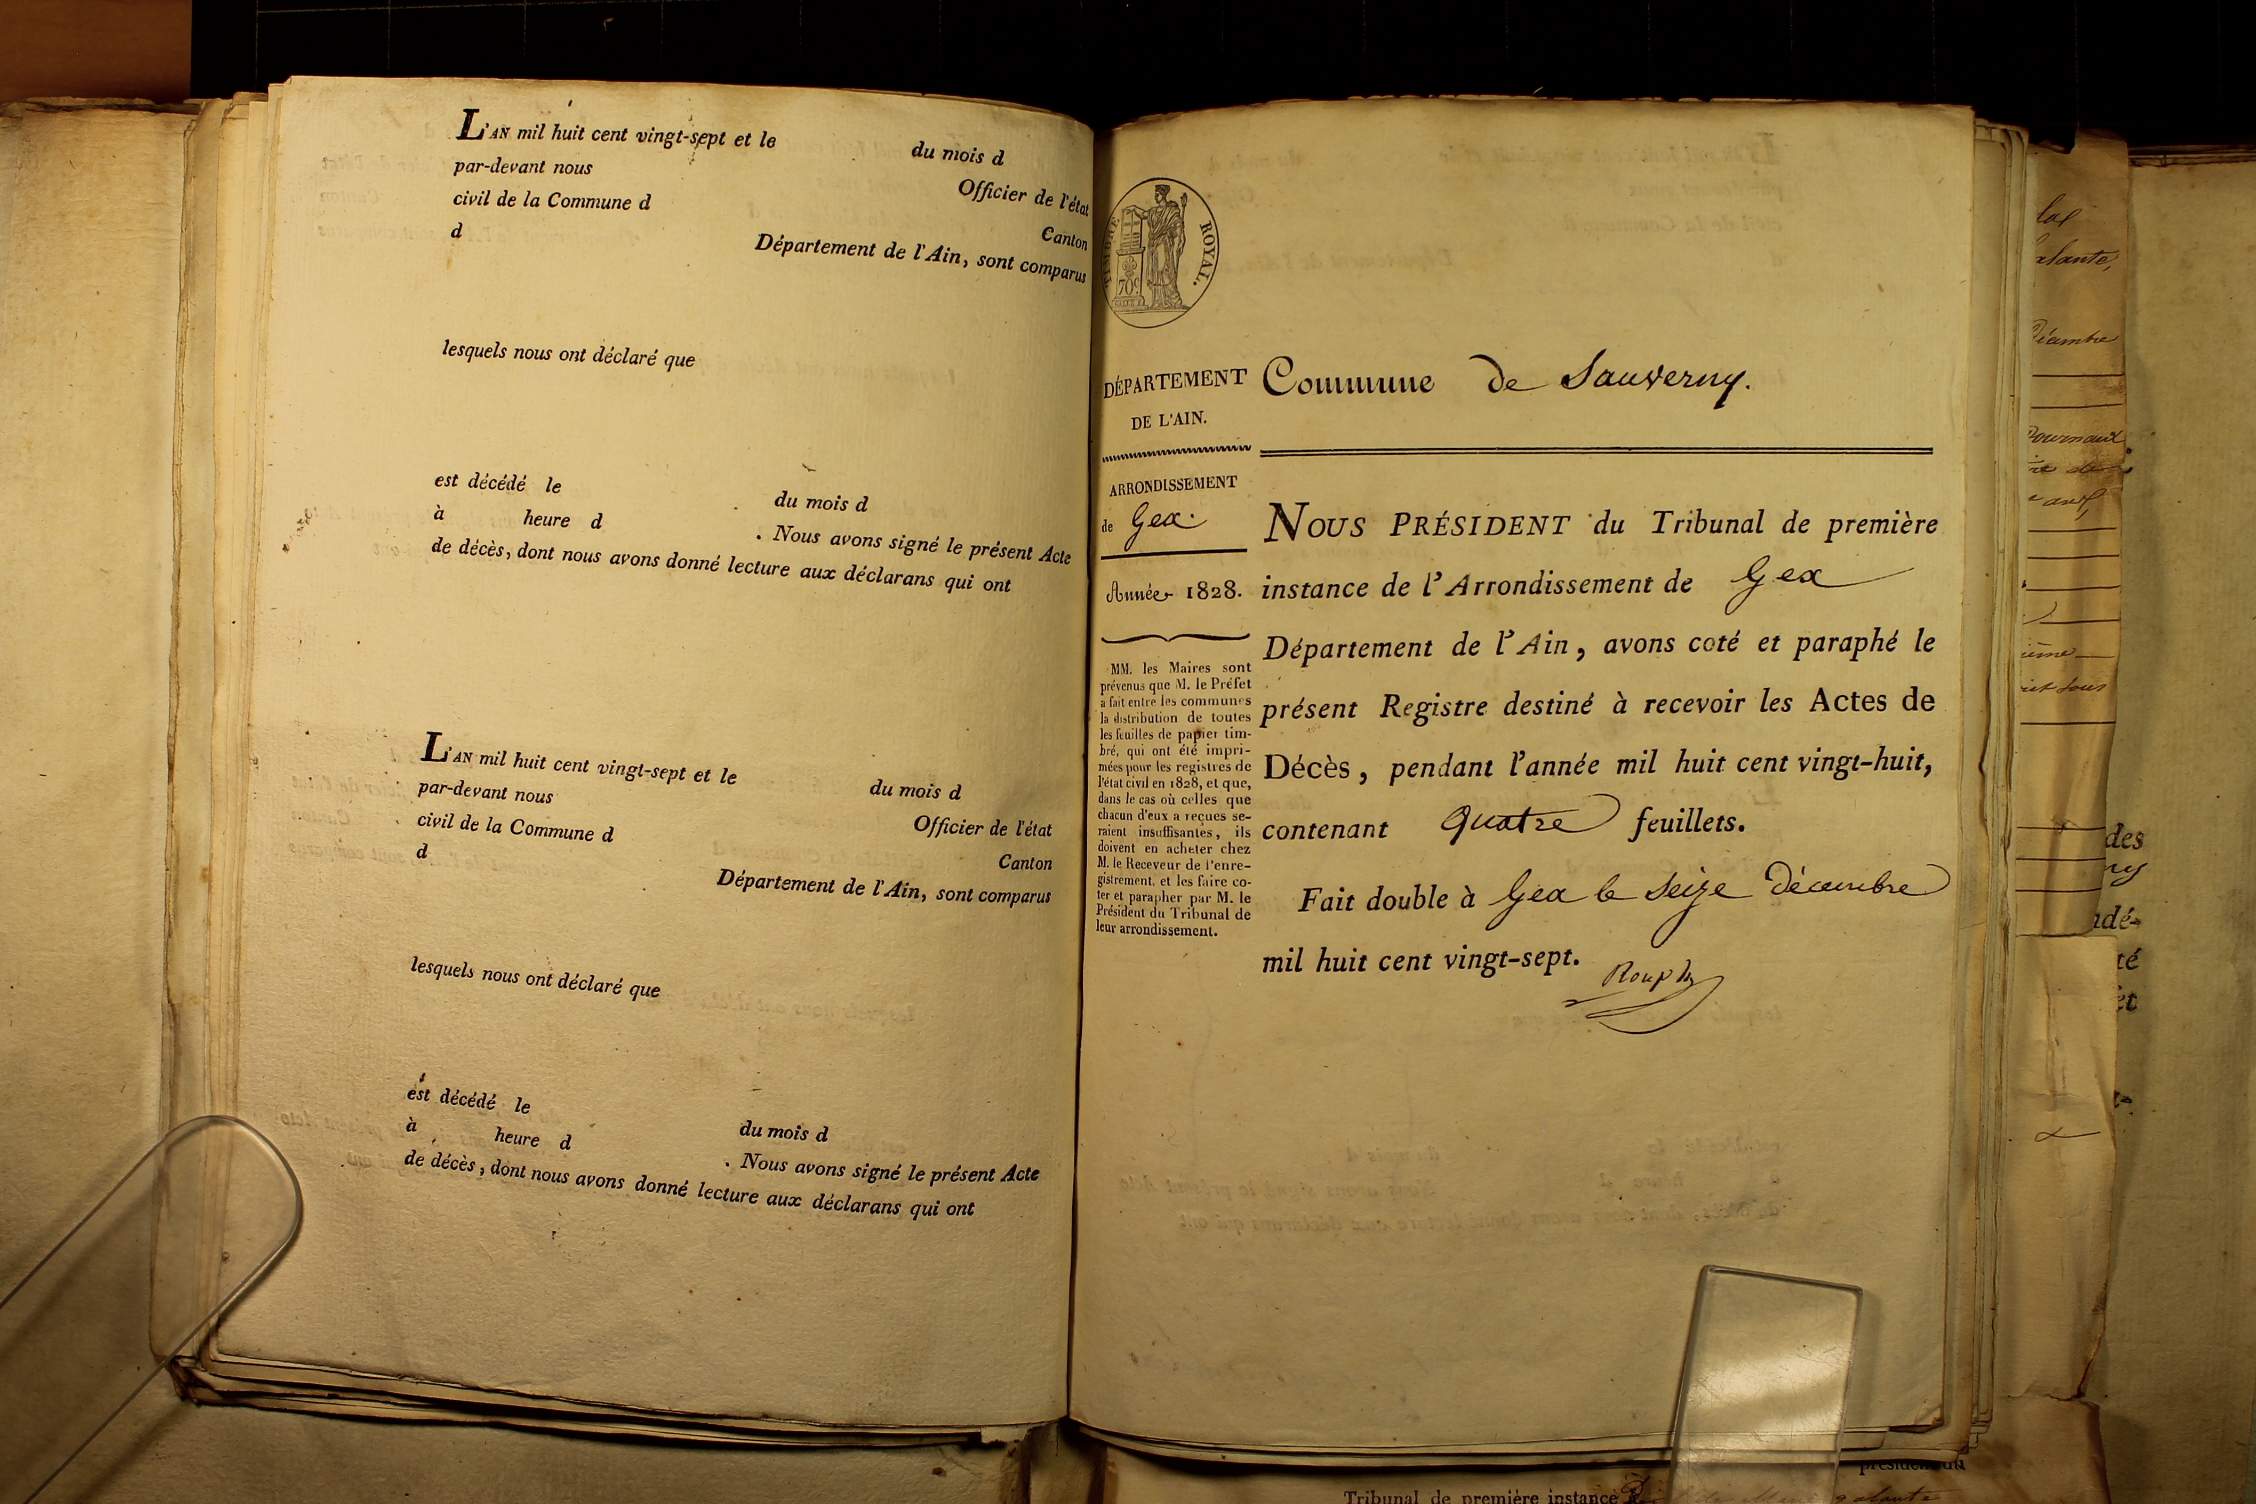 L'AN mil huit cent vingt-sept et le du mois d
par-devant nous Officier de l'état
civil de la Commune d Canton
d Département de l'Ain, sont comparus
lesquels nous ont déclaré que
est décédé le du mois d
à heure d . Nous avons signé le présent Acte
de décès, dont nous avons donné lecture aux déclarans qui ont
L'AN mil huit cent vingt-sept et le du mois d
par-devant nous Officier de l'état
civil de la Commune d Canton
d Département de l'Ain, sont comparus
lesquels nous ont déclaré que
est décédé le du mois d
à heure d . Nous avons signé le présent Acte
de décès, dont nous avons donné lecture aux déclarans qui ont
TIMBRE ROYAL.
70c.
DÉPARTEMENT
DE L'AIN.
ARRONDISSEMENT
de Gex.
Année 1828.
MM. les Maires sont
prévenus que M. le Préfet
a fait entre les communes
la distribution de toutes
les feuilles de papier tim-
bré, qui ont été impri-
mées pour les registres de
l'état civil en 1828, et que,
dans le cas où celles que
chacun d'eux a reçues se-
raient insuffisantes, ils
doivent en acheter chez
M. le Receveur de l'enre-
gistrement, et les faire co-
ter et parapher par M. le
Président du Tribunal de
leur arrondissement.
Commune de Sauverny.
NOUS PRÉSIDENT du Tribunal de première
instance de l'Arrondissement de Gex
Département de l'Ain, avons coté et paraphé le
présent Registre destiné à recevoir les Actes de
Décès, pendant l'année mil huit cent vingt-huit,
contenant Quatre feuillets.
Fait double à Gex le Seize Décembre
mil huit cent vingt-sept.
des
té
président du
Tribunal de première instance